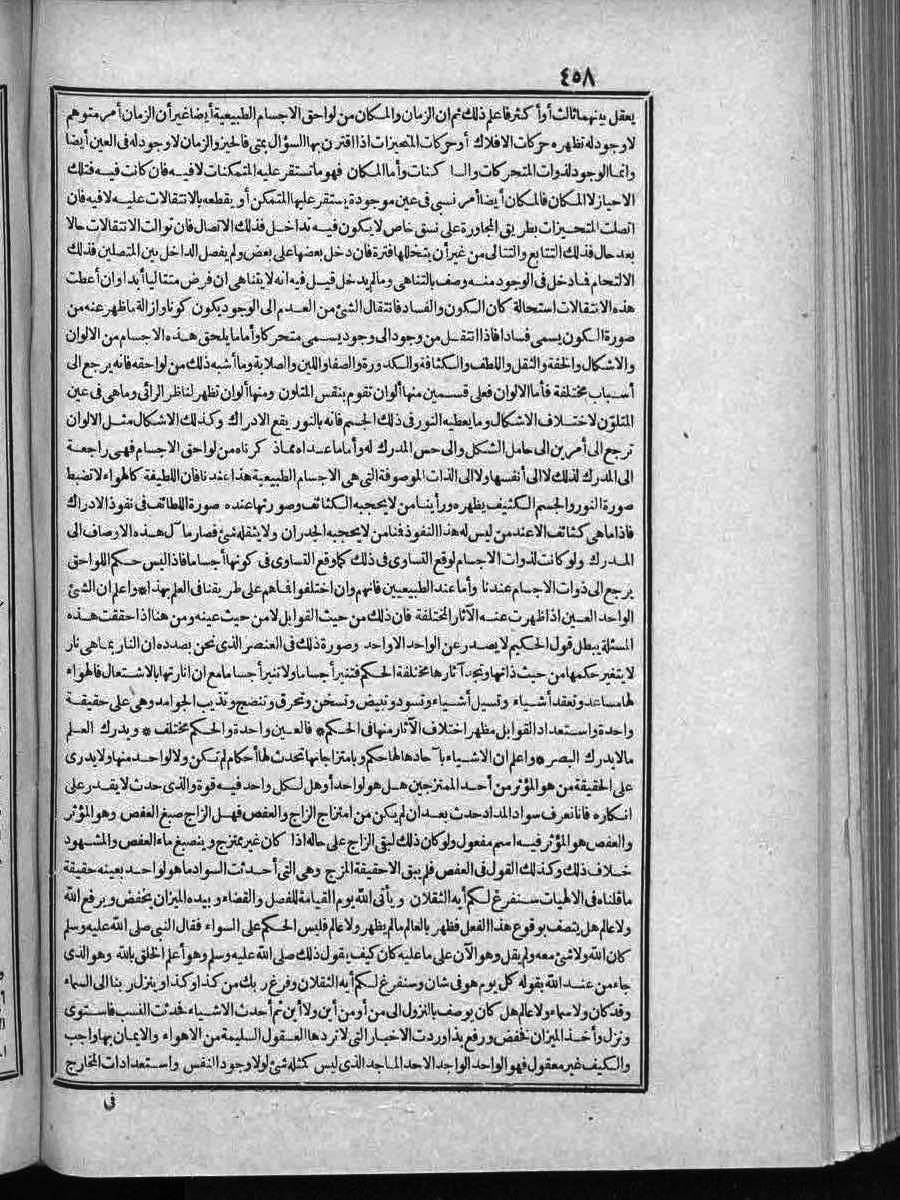 ٤٥٨
يعقل بينهما ثالث أو أكثر فاعلم ذلك ثم ان الزمان والمكان من لواحق الاجسام الطبيعية أيضا غير أن الزمان أمر متوهم
لا وجود له تظهره حركات الافلاك أو حركات المتحيزات اذا اقترن بها السؤال بمتى فالحيز والزمان لا وجود له فى العين أيضا
وانما الوجود لذوات المتحركات والساكنات وأما المكان فهو ما تستقر عليه المتمكنات لا فيه فان كانت فيه فتلك
الاحياز لا المكان فالمكان أيضا أمر نسبى فى عين موجودة يستقر عليها المتمكن أو يقطعه بالانتقالات عليه لا فيه فان
اتصلت المتحيزات بطريق المجاورة على نسق خاص لا يكون فيه تداخل فذلك الاتصال فان توالت الانتقالات حالا
بعد حال فذلك التتابع والتتالى من غير أن يتخللها فترة فان دخل بعضها على بعض ولم يفصل الداخل بين المتصلين فذلك
الالتحام فما دخل فى الوجود منه وصف بالتناهى وما لم يدخل قيل فيه انه لا يتناهى ان فرض متتاليا أبدا وان أعطت
هذه الانتقالات استحالة كان الكون والفساد فانتقال الشئ من العدم الى الوجود يكون كونا وازالة ما ظهر عنه من
صورة الكون يسمى فسادا فاذا انتقل من وجود الى وجود يسمى متحركا وأما ما يلحق هذه الاجسام من الالوان
والاشكال والخفة والثقل واللطف والكثافة والكدورة والصفا واللين والصلابة وما أشبه ذلك من لواحقه فانه يرجع الى
أسباب مختلفة فأما الالوان فعلى قسمين منها ألوان تقوم بنفس المتلون ومنها ألوان تظهر لناظر الرائى وما هى فى عين
المتلوّن لاختلاف الاشكال وما يعطيه النور فى ذلك الجسم فانه بالنور يقع الادراك وكذلك الاشكال مثل الالوان
ترجع الى أمرين الى حامل الشكل والى حس المدرك له وأما ما عداه مما ذكرناه من لواحق الاجسام فهى راجعة
الى المدرك لذلك لا الى أنفسها ولا الى الذات الموصوفة التى هى الاجسام الطبيعية هذا عندنا فان اللطيفة كالهواء لا تضبط
صورة النور والجسم الكثيف يظهره ورأينا من لا يحجبه الكثائف وصورتها عنده صورة اللطائف فى نفوذ الادراك
فاذا ما هى كثائف الا عند من ليس له هذا النفوذ فمنا من لا يحجبه الجدران ولا يثقله شئ فصار مآل هذه الاوصاف الى
المدرك ولو كانت لذوات الاجسام لوقع التساوى فى ذلك كما وقع التساوى فى كونها أجساما فاذا ليس حكم اللواحق
يرجع الى ذوات الاجسام عندنا وأما عند الطبيعيين فانهم وان اختلفوا فما هم على طريقتنا فى العلم بهذا * واعلم ان الشئ
الواحد العين اذا ظهرت عنه الآثار المختلفة فان ذلك من حيث القوابل لا من حيث عينه ومن هنا اذا حققت هذه
المسئلة يبطل قول الحكيم لا يصدر عن الواحد الا واحد وصورة ذلك فى العنصر الذى نحن بصدده ان النار بما هى نار
لا يتغير حكمها من حيث ذاتها وتجد آثارها مختلفة الحكم فتنير أجساما ولا تنير أجساما مع ان انارتها بالاشتعال فالهواء
لها مساعد وتعقد أشياء وتسيل أشياء وتسود وتبيض وتسخن وتحرق وتنضج وتذيب الجوامد وهى على حقيقة
واحدة واستعداد القوابل مظهر اختلاف الآثار منها فى الحكم * فالعين واحدة والحكم مختلف * ويدرك العلم
مالا يدرك البصر * واعلم ان الاشياء بآحادها لها حكم وبامتزاجها تحدث لها أحكام لم تكن ولا لواحد منها ولا يدرى
على الحقيقة من هو المؤثر من أحد الممتزجين هل هو لواحد أو هل لكل واحد فيه قوة والذى حدث لا يقدر على
انكاره فانا نعرف سواد المداد حدث بعد ان لم يكن من امتزاج الزاج والعفص فهل الزاج صبغ العفص وهو المؤثر
والعفص هو المؤثر فيه اسم مفعول ولو كان ذلك لبقى الزاج على حاله اذا كان غير ممتزج وينصبغ ماء العفص والمشهود
خلاف ذلك وكذلك القول فى العفص فلم يبق الا حقيقة المزج وهى التى أحدثت السواد ما هو لواحد بعينه حقيقة
ما قلناه فى الالهيات سنفرغ لكم أيه الثقلان ويأتى الله يوم القيامة للفصل والقضاء وبيده الميزان يخفض ويرفع الله
ولا عالم هل يتصف بوقوع هذا الفعل فظهر بالعالم ما لم يظهر ولا عالم فليس الحكم على السواء فقال النبى صلى الله عليه وسلم
كان الله ولا شئ معه ولم يقل وهو الآن على ما عليه كان كيف يقول ذلك صلى الله عليه وسلم وهو أعلم الخلق بالله وهو الذى
جاء من عند الله بقوله كل يوم هو فى شان وسنفرغ لكم أيه الثقلان وفرغ ربك من كذا وكذا وينزل ربنا الى السماء
وقد كان ولا سماء ولا عالم هل كان يوصف بالنزول الى من أو من أين ولا أين ثم أحدث الاشياء فحدثت النسب فاستوى
ونزل وأخذ الميزان فخفض ورفع بذا وردت الاخبار التى لا تردها العقول السليمة من الاهواء والايمان بها واجب
والكيف غير معقول فهو الواحد الواجد الاحد الماجد الذى ليس كمثله شئ لولا وجود النفس واستعدادات المخارج
فى